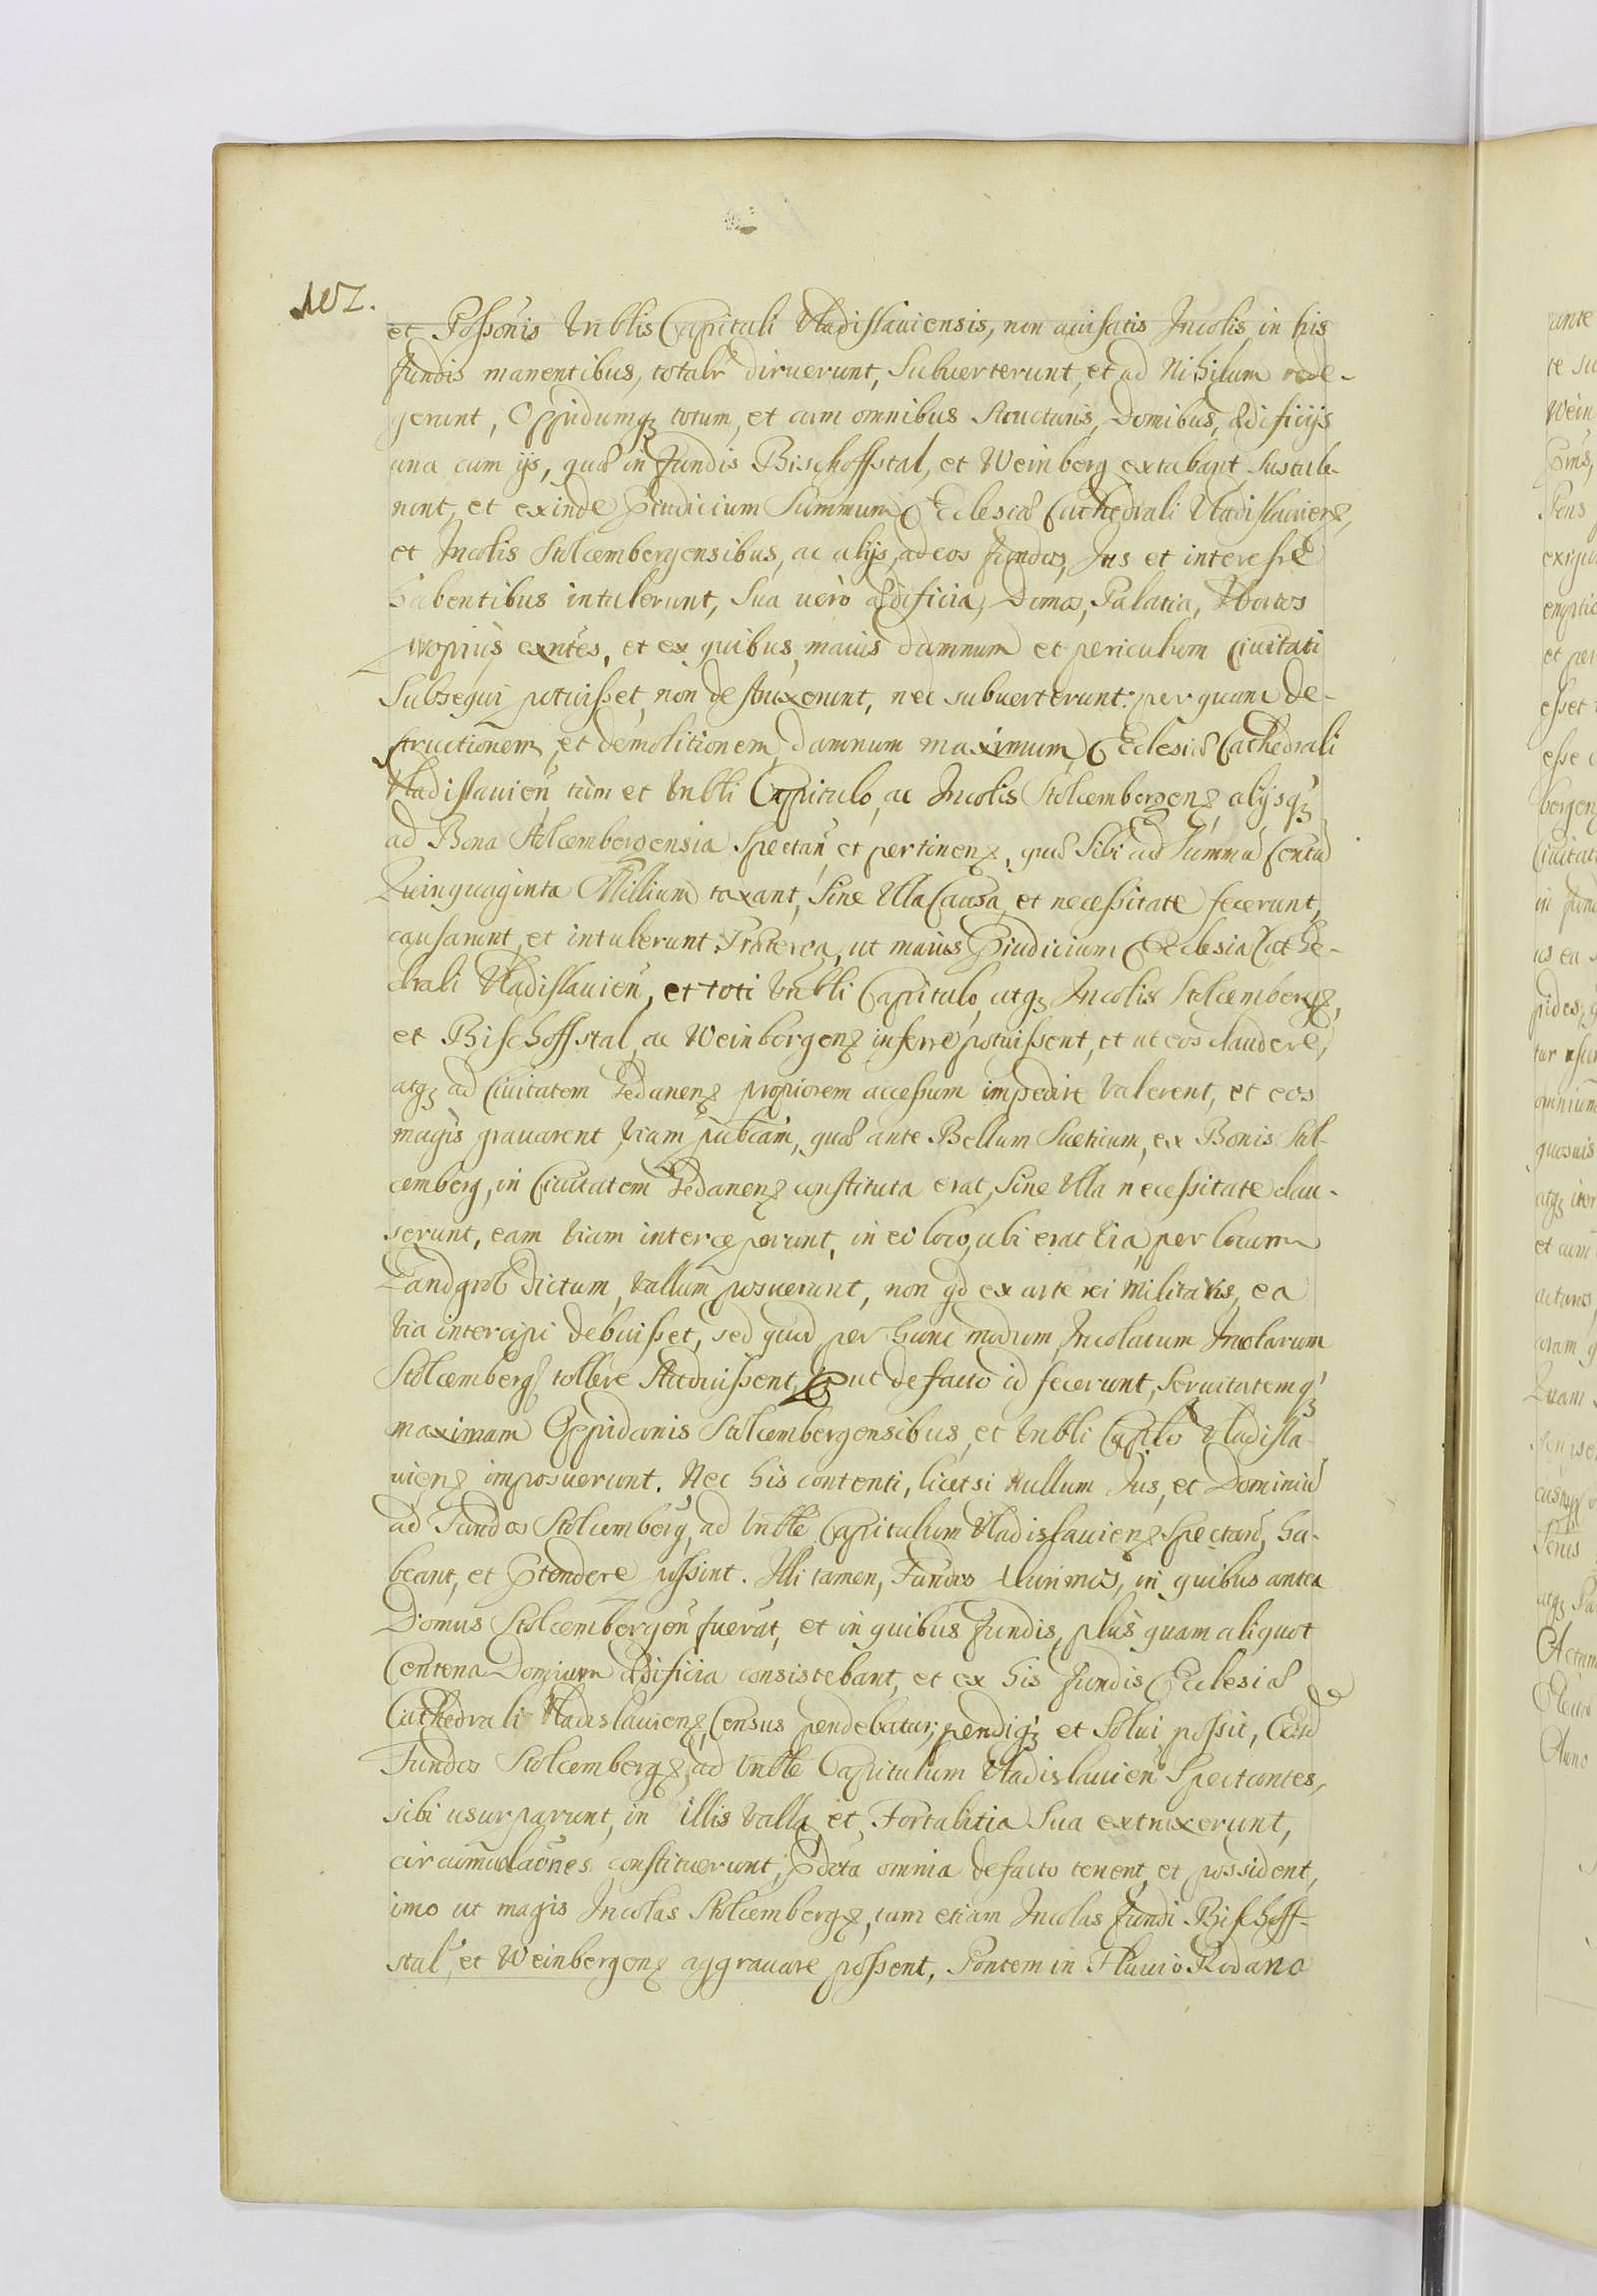 102.
et Possonis Vnblis Capituli Vladislauiensis, non auisatis Incolis, in his
fundis manentibus, totalr diruerunt, Subuerterunt, et ad Nihilum rede-
gerunt, Oppidumqz totum, et cum omnibus Structuris, Domibus, ædificijs
una cum ijs, quæ in fundis Bischoffstal, et Weinberg extabant Sustule-
runt, et exinde Præiudicium Summum Ecclesiæ Cathedrali Vladislauien,
et Incolis Stolcembergensibus, ac alijs, ad eos fundos, Ius et interesse
habentibus intulerunt, Sua uerò ædificia, Domos, Palatia, Hortos
propius exntes, et ex quibus maius damnum et periculum Ciuitati
Subsequi potuisset, non destruxerunt, nec subuerterunt: per quam de-
structionem, et demolitionem, damnum maximum, Ecclesiæ Cathedrali
Vladislauien, tùm et Vnbli Capitulo, ac Incolis Stolcembergen, alijsqz
ad Bona Stolcembergensia Spectan, et pertinen, quæ Sibi ad Summã Centũ
Quinquaginta Millium taxant, Sine Vlla Causa, et necessitate fecerunt,
causarunt, et intulerunt. Præterea, ut maius Præiudicium Ecclesiæ Cathe-
drali Vladislauien, et toti Vnbli Capitulo, atqz Incolis Stolcemberg,
et Bischoffstal, ac Weinbergen inferre potuissent, et ut eos claudere,
atqz ad Ciuitatem Gedanen propiorem accessum impedire Valerent, et eos
magis grauarent, Viam publcam, quæ ante Bellum Sueticum, ex Bonis Stol-
cemberg, in Ciuitatem Gedanen constituta erat, Sine Vlla necessitate clau-
serunt, eam Viam interceperunt, in eo loco, ubi erat Via, per locum
Landgrob dictum, Vallum posuerunt, non qd ex arte rei Militaris, ea
Via intercipi debuisset, sed quod per hunc modum, Incolatum Incolarum
Stolcemberg tollere Studuissent, Prout de facto id fecerunt, Seruitutemqz
maximam Oppidanis Stolcembergensibus, et Vnbli Caplo Vladisla-
uien imposuerunt. Nec his contenti, licet si Nullum Ius, et Dominiũ
ad Fundos Stolcemberg, ad Vnble Capitulum Vladislauien Spectan, ha-
beant, et Prætendere possint. Illi tamen, Fundos Plurimos, in quibus antea
Domus Stolcembergen fuerãt, et in quibus fundis, plus quam aliquot
Centena Domium ædificia consistebant, et ex his fundis Ecclesiæ
Cathedrali Vladislauien, Census pendebatur, pendiqz et Solui possit, Eosd
Fundos Stolcemberg, ad Vnble Capitulum Vladislauien Spectantes,
sibi usurparunt, in illis Valla, et Fortalitia Sua extruxerunt,
circumualaones constituerunt, Prædcta omnia de facto tenent, et possident,
imo ut magis Incolas Stolcemberg, tum etiam Incolas fundi Bischoff-
stal, et Weinbergen aggrauare possent, Pontem in Fluuio Rodano